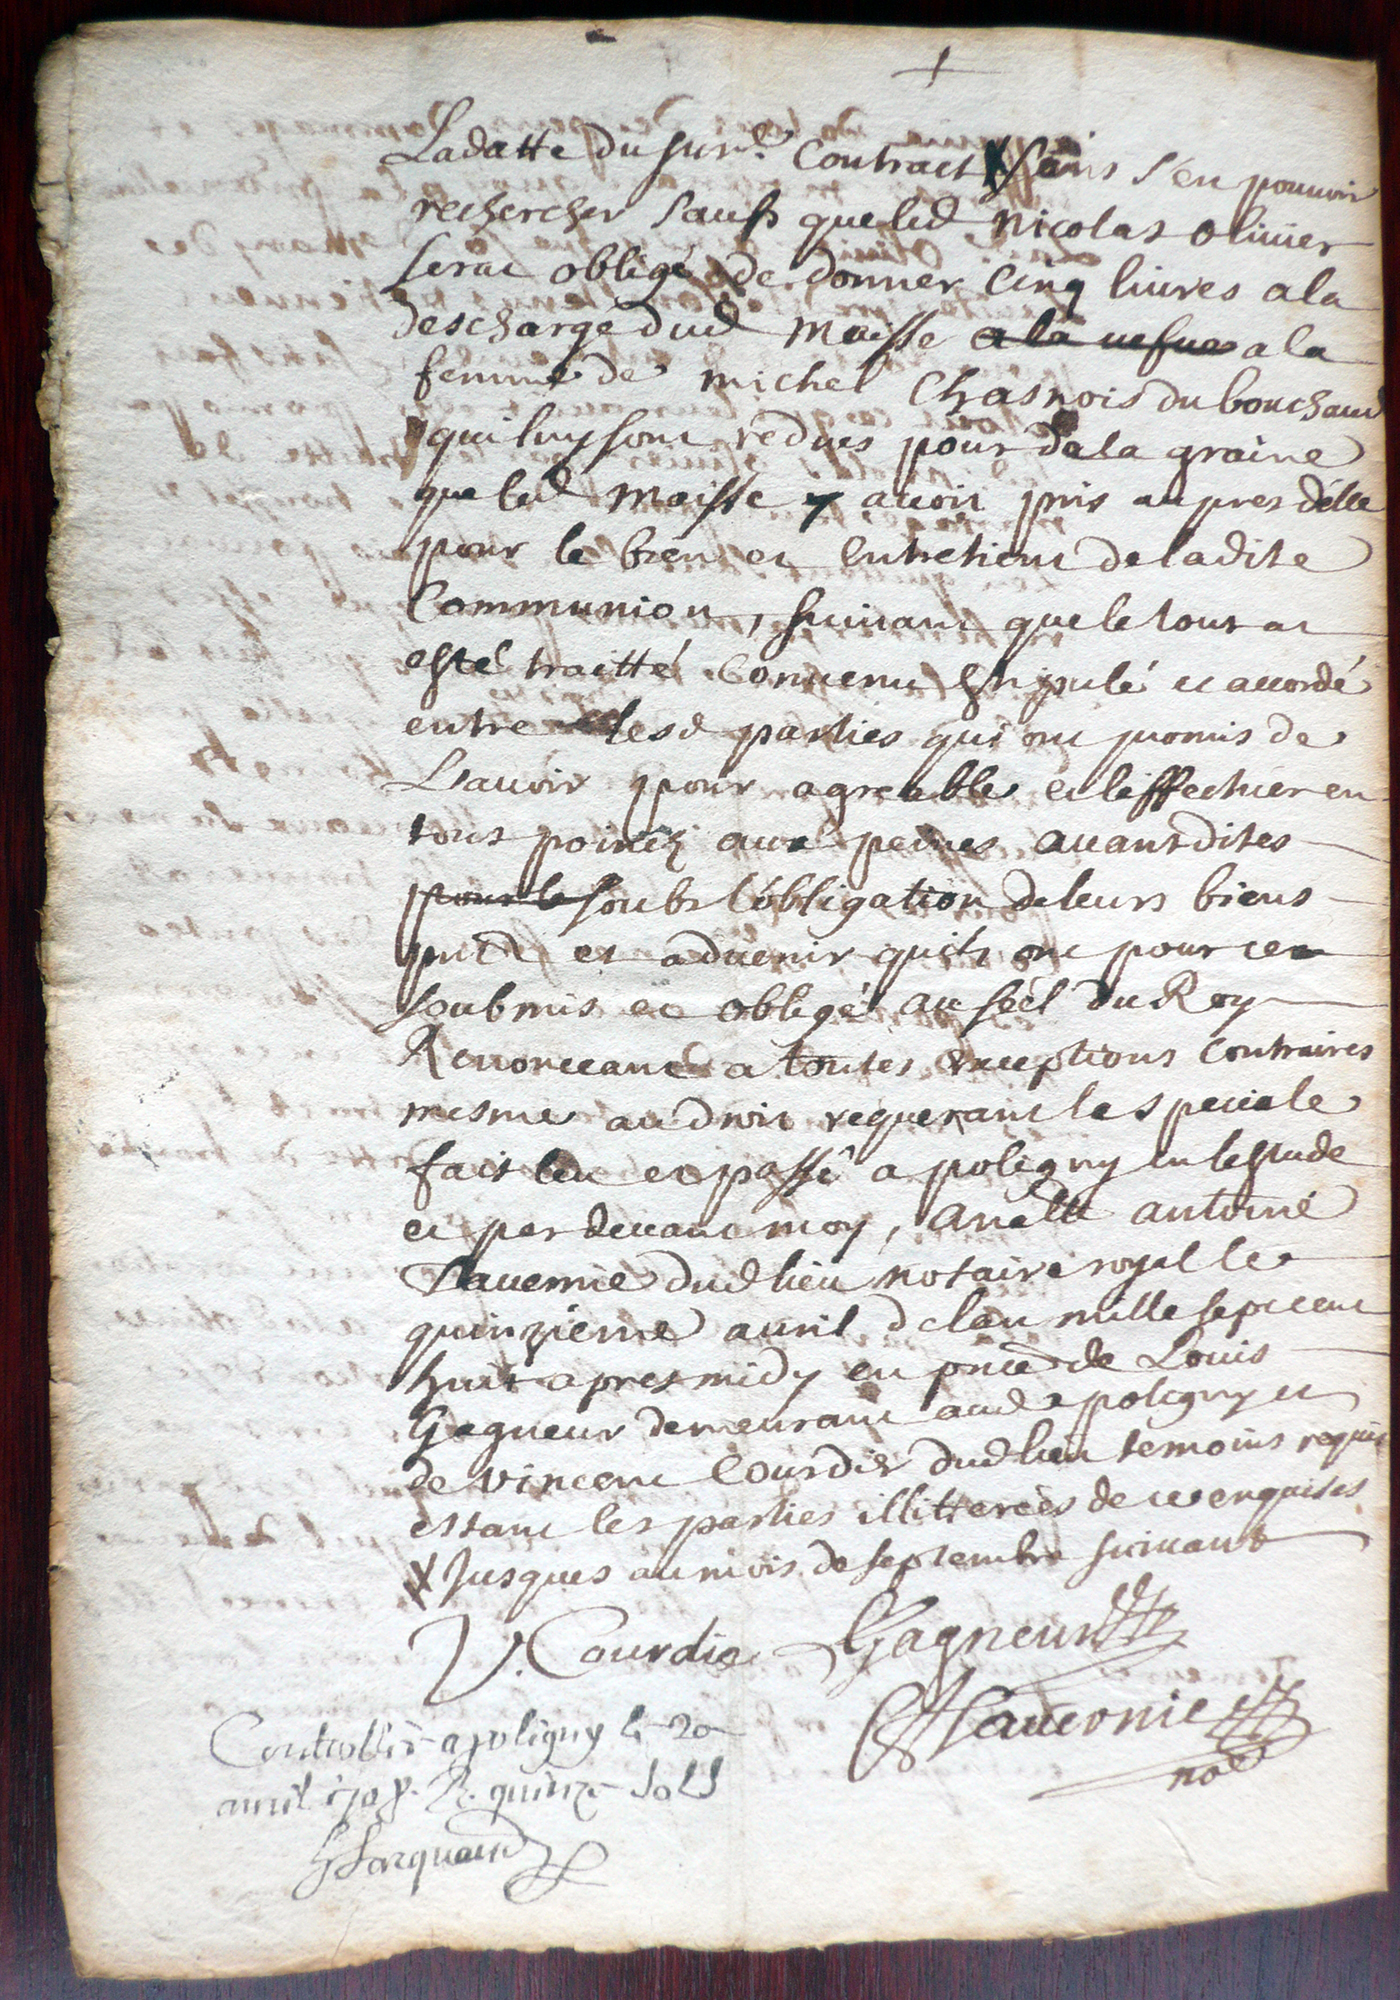 Ladatte du surd. Contract X sans s'en pouvoir
rechercher sauf que led Nicolas olivier
serat obligé de donner Cinq livres a la
descharge dud Maisse a la vefve a la
femme de michel Chasnois du bouchaud
qui luy sont redues pour de la graine
que led Maisse y avoit pris au pres d'elle
pour le bien et Entretient de ladite
Communion, suivant que le tout at
esté traitté Convenu Stipulé et accordé
entre lesd parties qui ont promis de
L'avoir pour agreable et l'effectuer en
tous points aux peines avantdites
pour le soubs l'obligation de leurs biens
pntz et advenir qu'ils ont pour ce
soubmis et obligé au séel du Roy
Renonceant a toutes exceptions Contraires
mesme au droit requerant la speciale
fait leu et passé a poligny en l'estude
et par devant moy, Anatle antoine
Lavernie dud lieu notaire royal le
quinzieme avril de l'an mille sept cent
huit apres midy en pnce de Louis
Gagneur demeurant aud poligny et
de Vincent Courdier dud lieu temoins requis
estant les parties illitterées de ce enquises
X Jusques au mois de septembre suivant
V. Courdie LGagneur
Lavernie
not
Controllé a poligny le 20
avril 1708. R. quinze sols